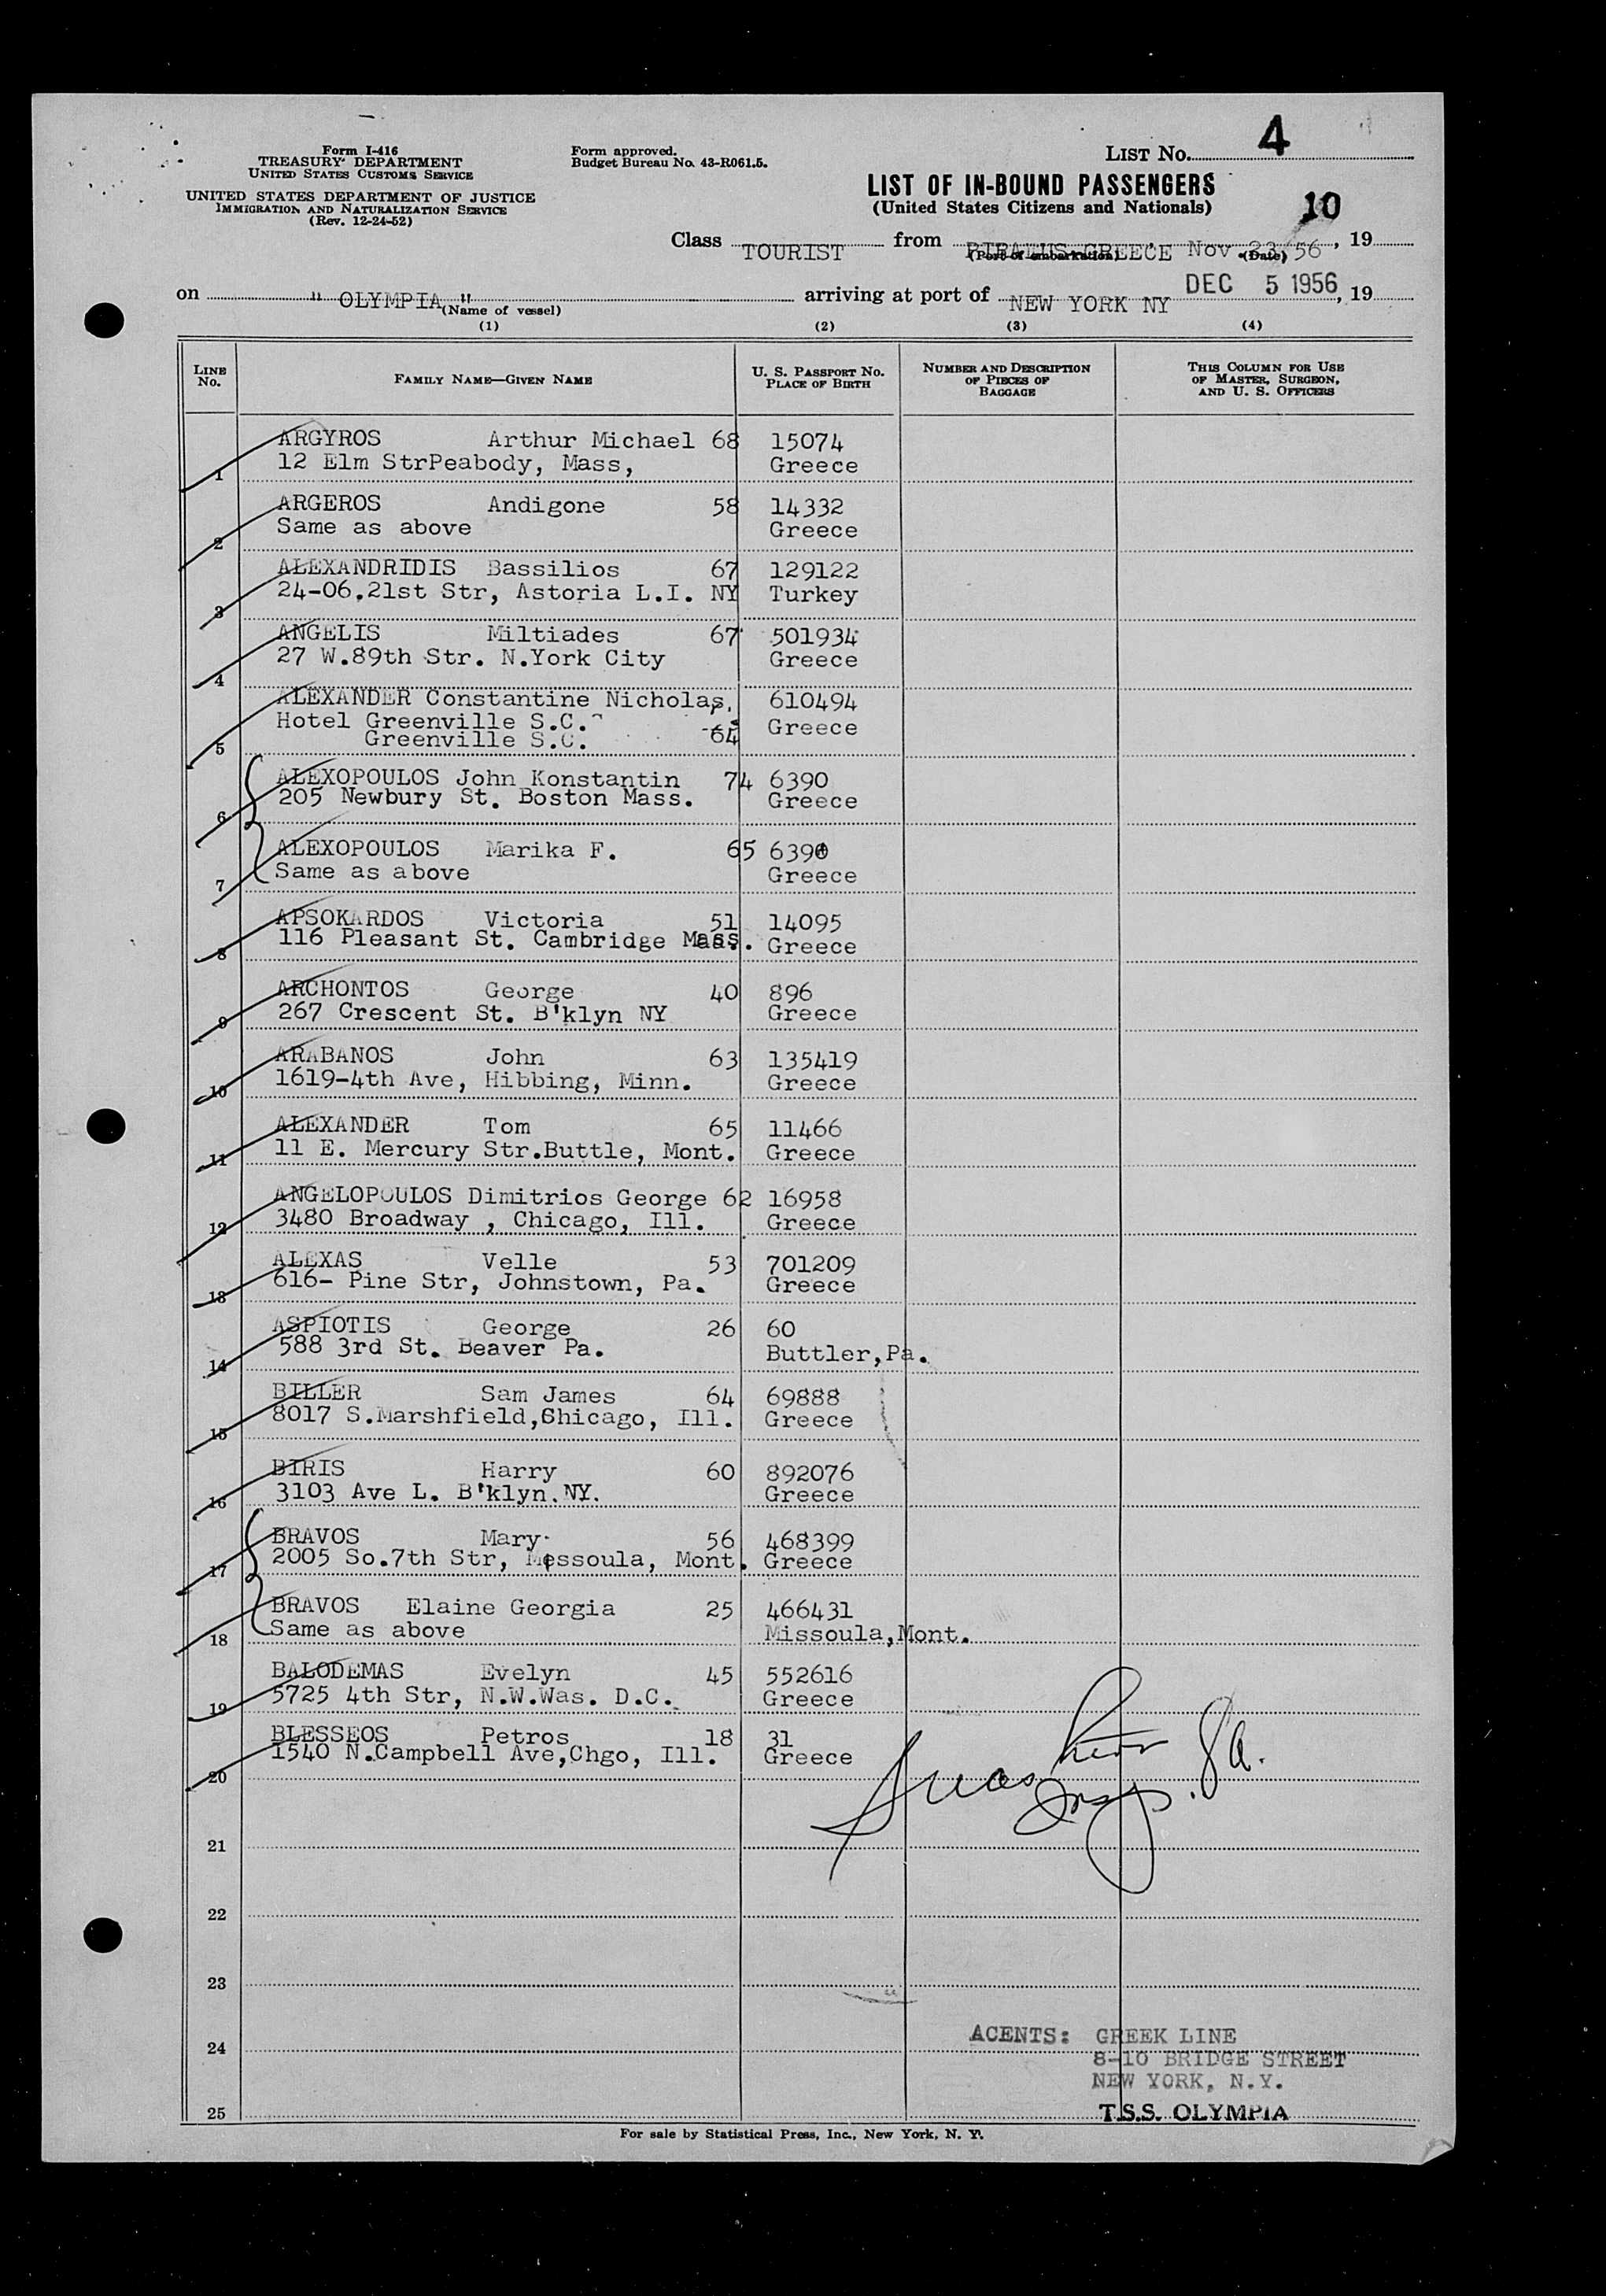 Form I-416
TREASURY DEPARTMENT
UNITED STATES CUSTOMS SERVICE
UNITED STATES DEPARTMENT OF JUSTICE
IMMIGRATION AND NATURALIZATION SERVICE
(Rev. 12-24-52)
Form approved.
Budget Bureau No. 43-R061.5.
LIST NO. 4
LIST OF IN-BOUND PASSENGERS
(United States Citizens and Nationals)
10
Class TOURIST from PIRAEUS GREECE Nov 23/56, 19
(Port of embarkation) (Date)
on " OLYMPIA " arriving at port of NEW YORK NY DEC 5 1956, 19
(Name of vessel)
(1) (2) (3) (4)
LINE NO. FAMILY NAME—GIVEN NAME U. S. PASSPORT NO. PLACE OF BIRTH NUMBER AND DESCRIPTION OF PIECES OF BAGGAGE THIS COLUMN FOR USE OF MASTER, SURGEON, AND U. S. OFFICERS
ARGYROS Arthur Michael 68 15074
1 12 Elm StrPeabody, Mass, Greece
ARGEROS Andigone 58 14332
2 Same as above Greece
ALEXANDRIDIS Bassilios 67 129122
3 24-06.21st Str, Astoria L.I. NY Turkey
ANGELIS Miltiades 67 501934
4 27 W.89th Str. N.York City Greece
ALEXANDER Constantine Nicholas, 610494
Hotel Greenville S.C. Greece
5 Greenville S.C. 64
ALEXOPOULOS John Konstantin 74 6390
6 205 Newbury St. Boston Mass. Greece
ALEXOPOULOS Marika F. 65 6390
7 Same as above Greece
APSOKARDOS Victoria 51 14095
8 116 Pleasant St. Cambridge Mass. Greece
ARCHONTOS George 40 896
9 267 Crescent St. B'klyn NY Greece
ARABANOS John 63 135419
10 1619-4th Ave, Hibbing, Minn. Greece
ALEXANDER Tom 65 11466
11 11 E. Mercury Str.Buttle, Mont. Greece
ANGELOPOULOS Dimitrios George 62 16958
12 3480 Broadway , Chicago, Ill. Greece
ALEXAS Velle 53 701209
13 616- Pine Str, Johnstown, Pa. Greece
ASPIOTIS George 26 60
14 588 3rd St. Beaver Pa. Buttler,Pa.
BILLER Sam James 64 69888
15 8017 S.Marshfield,Chicago, Ill. Greece
BIRIS Harry 60 892076
16 3103 Ave L. B'klyn.NY. Greece
BRAVOS Mary 56 468399
17 2005 So.7th Str, Messoula, Mont. Greece
BRAVOS Elaine Georgia 25 466431
18 Same as above Missoula,Mont.
BALODEMAS Evelyn 45 552616
19 5725 4th Str, N.W.Was. D.C. Greece
BLESSEOS Petros 18 31
20 1540 N.Campbell Ave,Chgo, Ill. Greece
21
22
23
24
25
ACENTS: GREEK LINE
8-10 BRIDGE STREET
NEW YORK, N.Y.
T.S.S. OLYMPIA
For sale by Statistical Press, Inc., New York, N. Y.